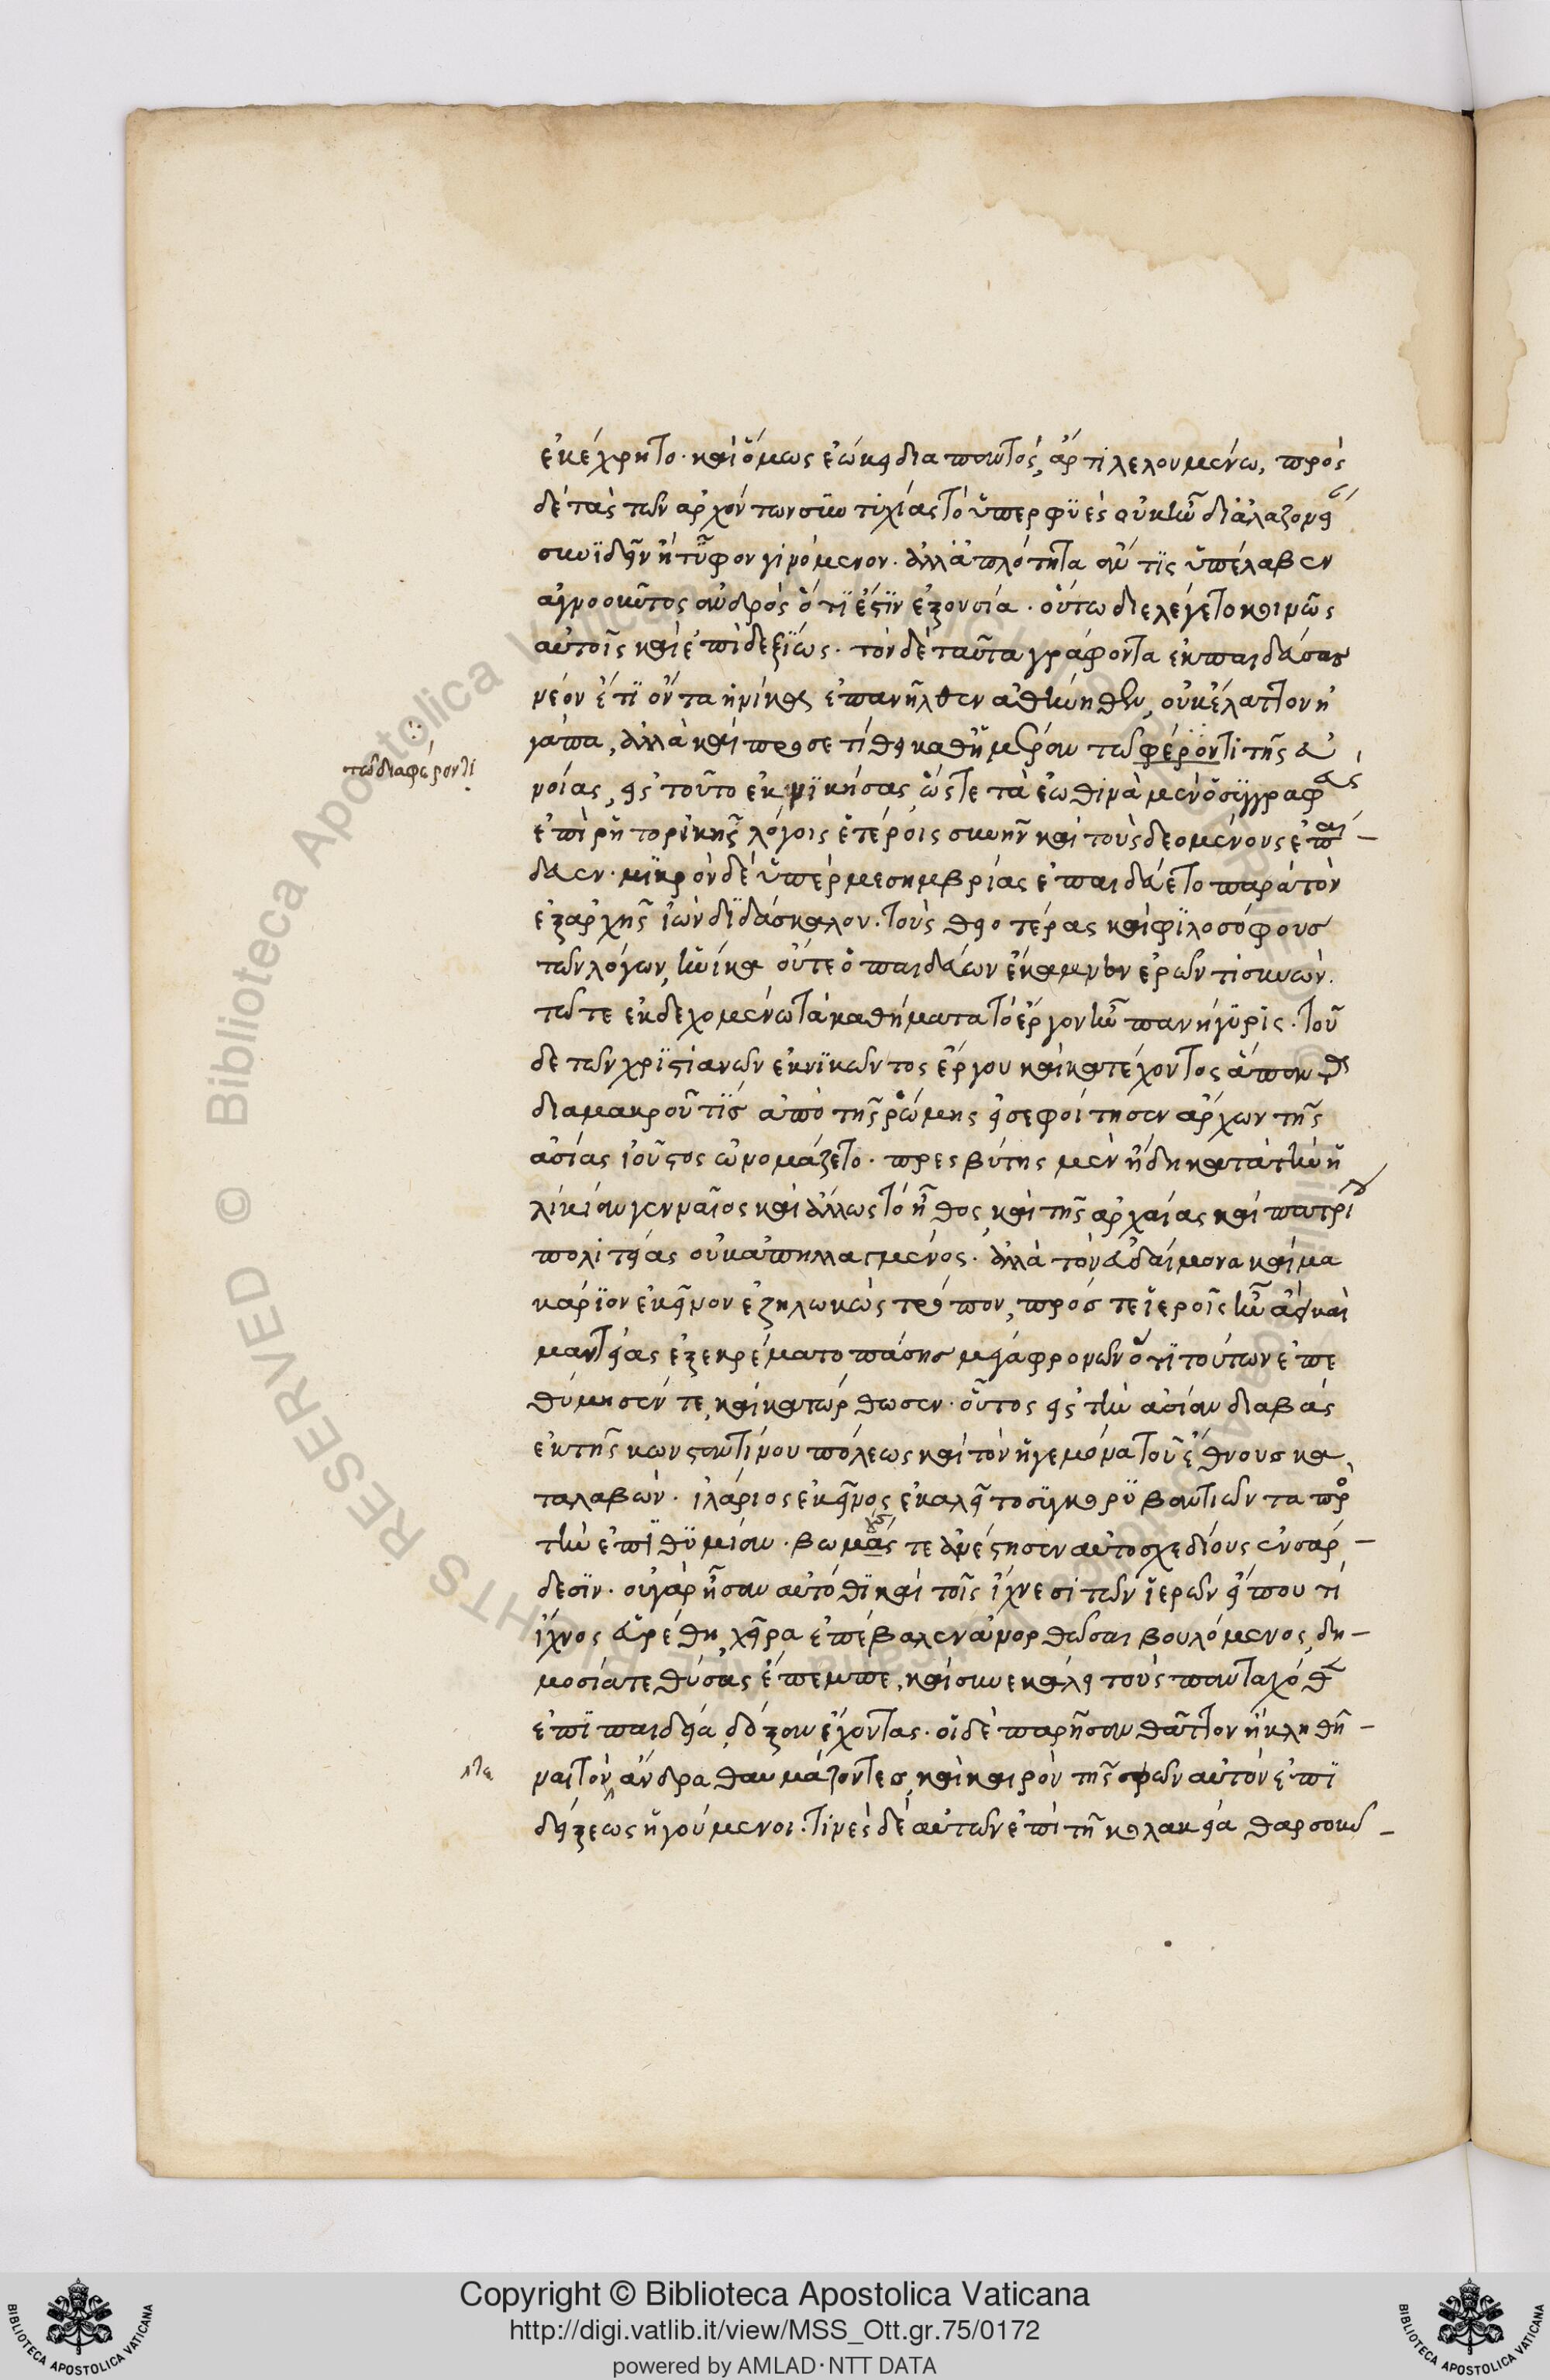 ἐκέχρητο· καὶ ὅμως ἐώκει διαπαντὸς, ἄρτι λελουμένω, πρὸς
δὲ τὰς τῶν ἀρχόντων συντυχίας τὸ ὑπερφυὲς οὐκ ἦν δι ἀλαζονεί
αν ἰδεῖν ἢ τῦφον γινόμενον· ἀλλ ἁπλότητα ἄν τις ὑπέλαβεν
ἀγνοοῦντος ἀνδρὸς ὅ τι ἐστὶν ἐξουσία· οὕτω διελέγετο κοινῶς
αὐτοῖς καὶ ἐπιδεξίως· τὸν δὲ ταῦτα γράφοντα ἐκπαιδεύσας
νέον ἔτι ὄντα ἡνίκα ἐπανῆλθεν Ἀθήνηθεν, οὐκ ἔλαττον ἠ
γάπα, ἀλλὰ καὶ προσετίθει καθημέραν τῶ φέροντι τῆς εὐ
τῶ διαφέροντι
νοίας, εἰς τοῦτο ἐκνικήσας ὥστε τὰ ἑωθινὰ μὲν ὁ συγγραφεὺς
ἐπὶ ῥητορικῆς λόγοις ἑτέροις συνῆν καὶ τοὺς δεομένους ἐπαί
δευεν· μικρὸν δὲ ὑπὲρ μεσημβρίας ἐπαιδεύετο παρὰ τὸν
ἐξ ἀρχῆς ἰὼν διδάσκαλον· τοὺς θειοτέρους καὶ φιλοσόφους
τῶν λόγων, ἡνίκα οὔτε ὁ παιδεύων ἔκαμνεν ἐρῶντι συνὼν·
τῶ τε ἐκδεχομένω τὰ μαθήματα τὸ ἔργον ἦν πανήγυρις· τοῦ
δὲ τῶν χριστιανῶν ἐκνικῶντος ἔργου καὶ κατέχοντος ἅπαντα
διαμακροῦ τις ἀπὸ τῆς ῥώμης εἰσεφοίτησεν ἄρχων τῆς
ἀσίας ἰοῦστος ὠνομάζετο· πρεσβύτης μὲν ἤδη κατὰ τὴν ἡ
λικίαν γενναῖος καὶ ἄλλως τὸ ἦθος, καὶ τῆς ἀρχαίας καὶ πατρίου
πολιτείας οὐκ ἀπηλλαγμένος· ἀλλὰ τὸν εὐδαίμονα καὶ μα
κάριον ἐκεῖνον ἐζηλωκὼς τρόπον, πρός τε ἱεροῖς ἦν ἀεὶ καὶ
μαντείας ἐξεκρέματο πάσης μέγα φρονῶν ὅτι τούτων ἐπε
θύμησέν τε, καὶ κατώρθωσεν· οὗτος εἰς τὴν ἀσίαν διαβὰς
ἐκ τῆς κωνσταντίνου πόλεως καὶ τὸν ἡγεμόνα τοῦ ἔθνους κα
ταλαβὼν· ἱλάριος ἐκεῖνος ἐκαλεῖτο συγκορυβαντιῶντα πρὸς
τὴν ἐπιθυμίαν· βωμάς τε ἀνέστησεν αὐτοσχεδίους ἐν σάρ
ους
δεσιν· οὐ γὰρ ἦσαν αὐτόθι καὶ τοῖς ἴχνεσι τῶν ἱερῶν εἴπου τι
ἴχνος εὑρέθη, χεῖρα ἐπέβαλεν ἀνορθῶσαι βουλόμενος, δη
μοσίᾳ τε θύσας ἔπεμπε, καὶ συνεκάλει τοὺς πανταχόθεν
ἐπὶ παιδείᾳ δόξαν ἔχοντας· οἱ δὲ παρῆσαν θᾶττον ἢ κληθῆ
ναι τὸν ἄνδρα θαυμάζοντες, καὶ καιρὸν τῆς σφῶν αὐτῶν ἐπι
δείξεως ἡγούμενοι· τινὲς δὲ αὐτῶν ἐπὶ τῆ κολακεία θαρσοῦν